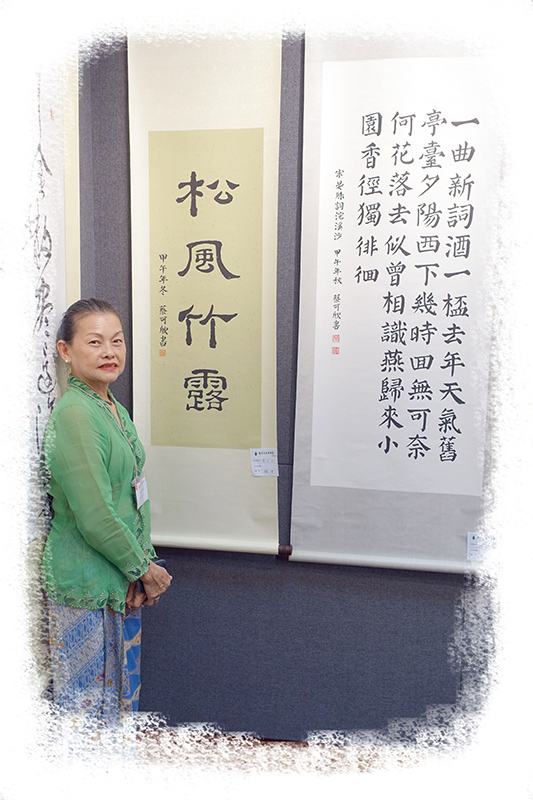 一曲新詞酒一桮去年天氣舊
亭臺夕陽西下幾時回無可奈
何花落去似曾相識燕歸來小
園香徑獨徘徊
宋晏殊詞浣溪沙 甲午年秋 蔡可欣書
松風竹露
甲午年冬 蔡可欣書